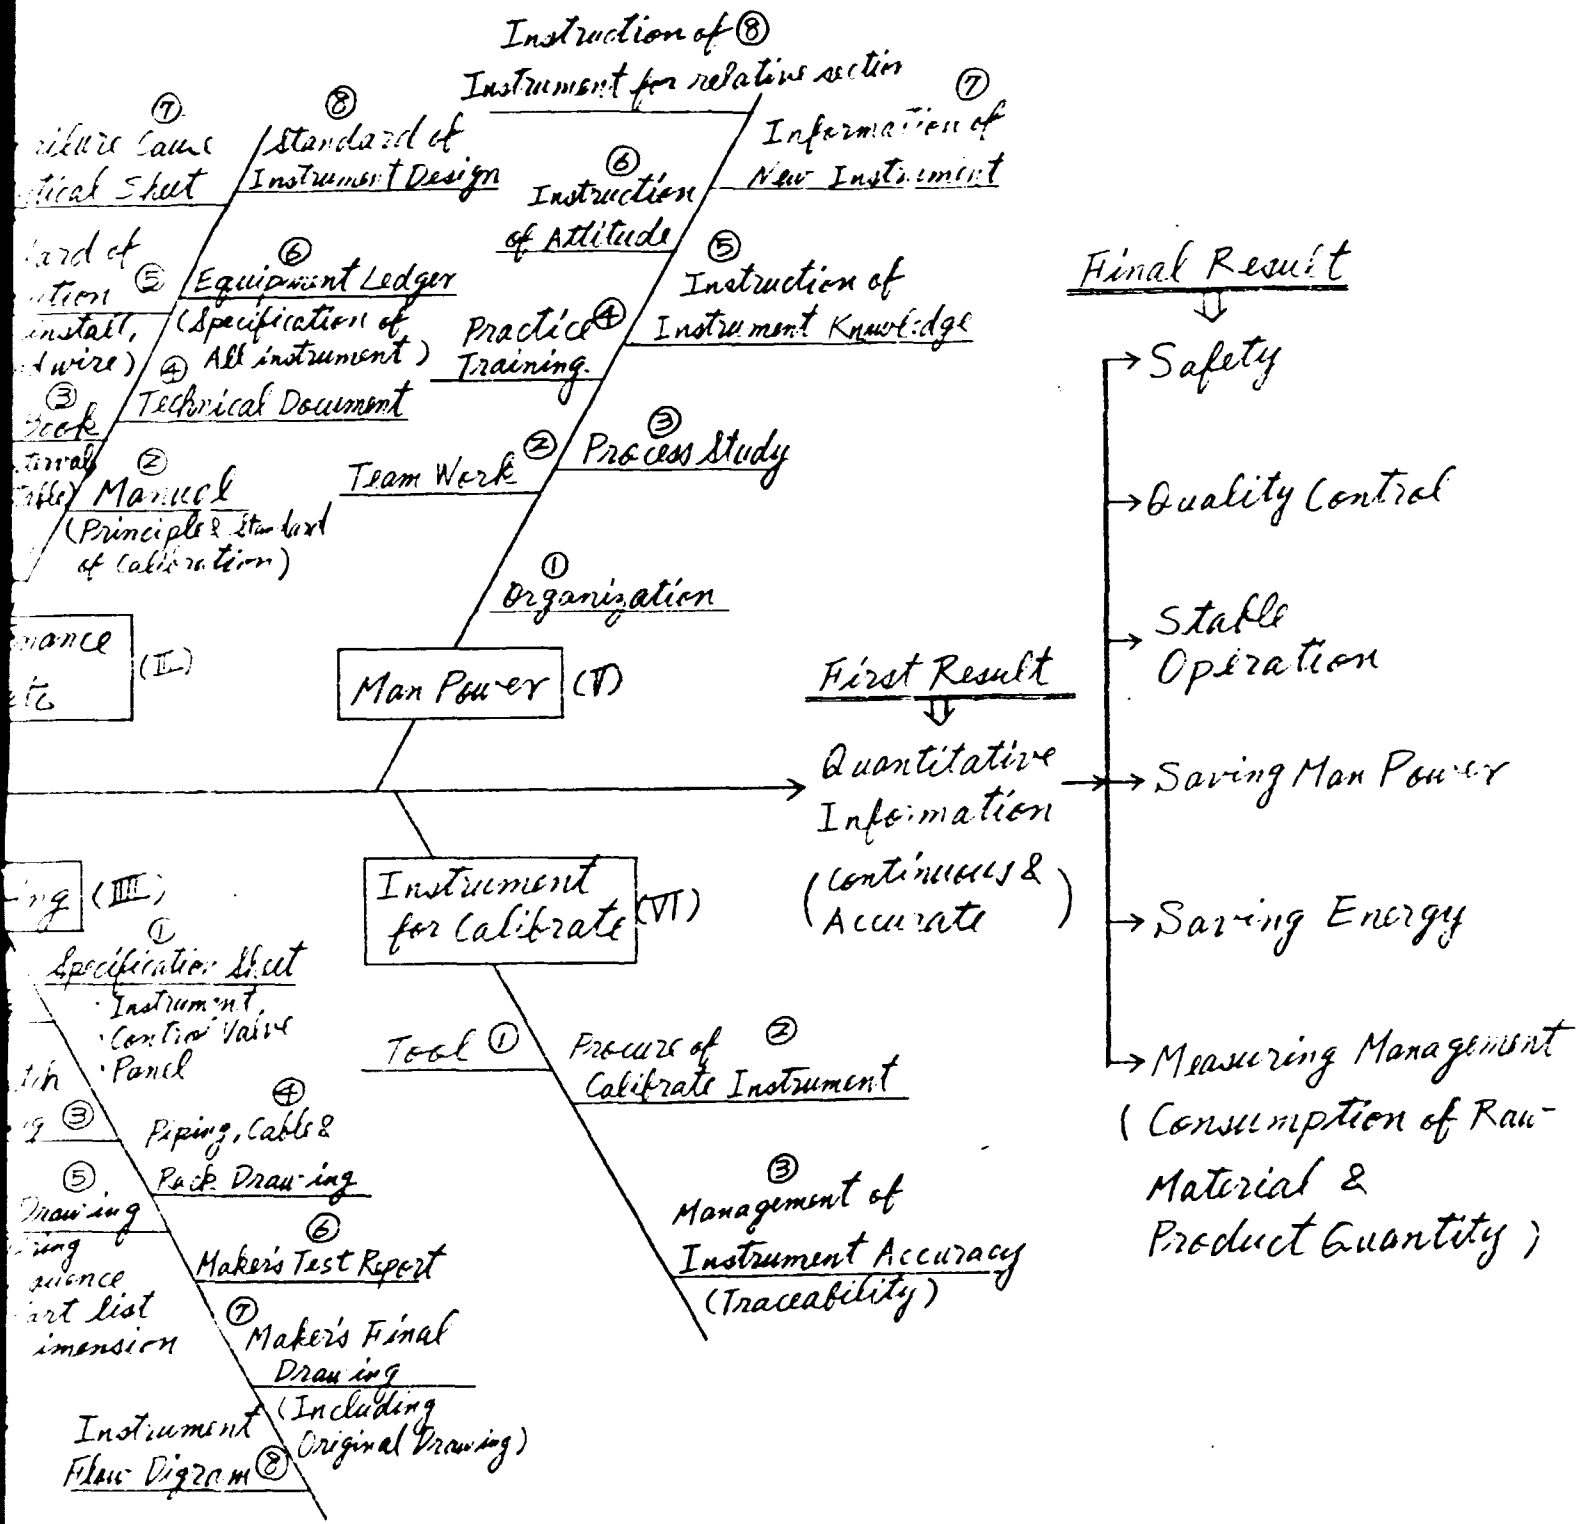 Instruction of ⑧
Instrument for relative section
⑦
Information of
New Instrument
⑥
Instruction
of Attitude
⑤
Instruction of
Instrument Knowledge
Practice ④
Training.
③
Process Study
Team Work ②
①
Organization
Man Power (V)
⑦
Cause
Sheet
⑧
Standard of
Instrument Design
of
⑤
install,
wire)
⑥
Equipment Ledger
(Specification of
All instrument)
④
Technical Document
③
Book
②
Manual
(Principle & Standard
of Calibration)
(II)
First Result
Quantitative
Information
(Continuous &
Accurate)
Final Result
Safety
Quality Control
Stable
Operation
Saving Man Power
Saving Energy
Measuring Management
(Consumption of Raw-
Material &
Product Quantity)
(III)
①
Specification Sheet
· Instrument,
· Control Valve
· Panel
③
④
Piping, Cable &
Rack Drawing
⑤
Drawing
list
⑥
Maker's Test Report
⑦
Maker's Final
Drawing
(Including
Original Drawing)
Instrument
Flow Digram ⑧
Instrument
for Calibrate (VI)
Tool ①
Procure of ②
Calibrate Instrument
③
Management of
Instrument Accuracy
(Traceability)